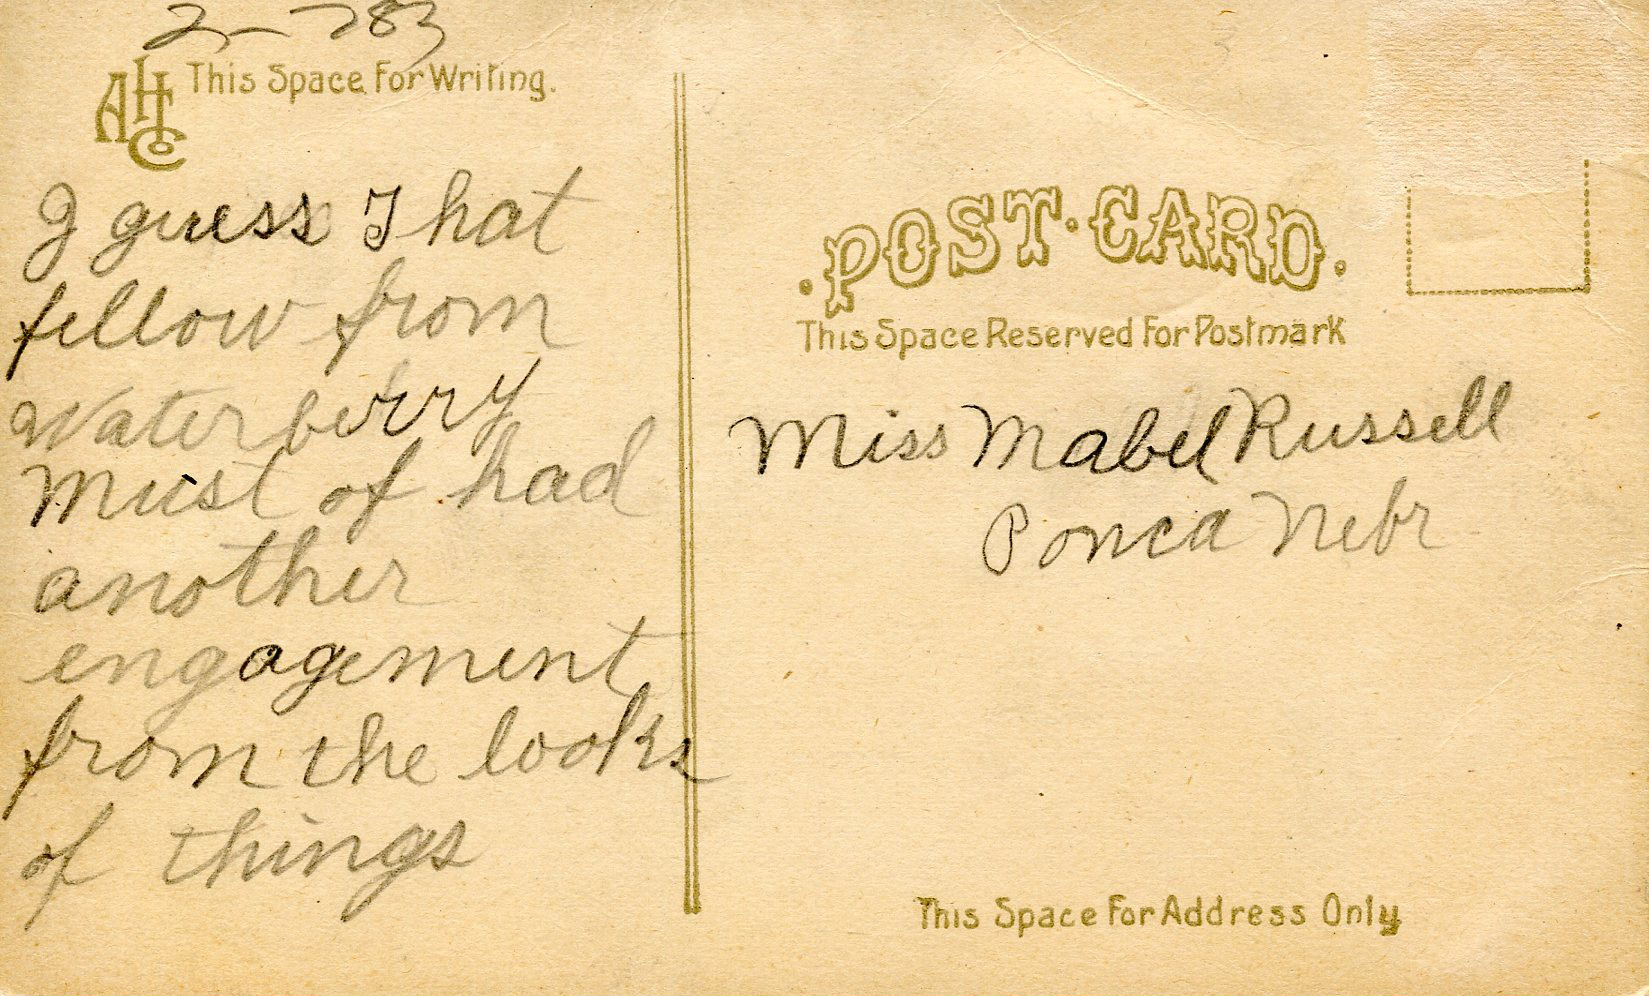 2 - 283
AHCo
This Space For Writing.
I guess That
fellow from
Waterberry
Must of had
another
engagement
from the looks
of things
POST·CARD.
This Space Reserved For Postmark
Miss Mabel Russell
Ponca Nebr
This Space For Address Only